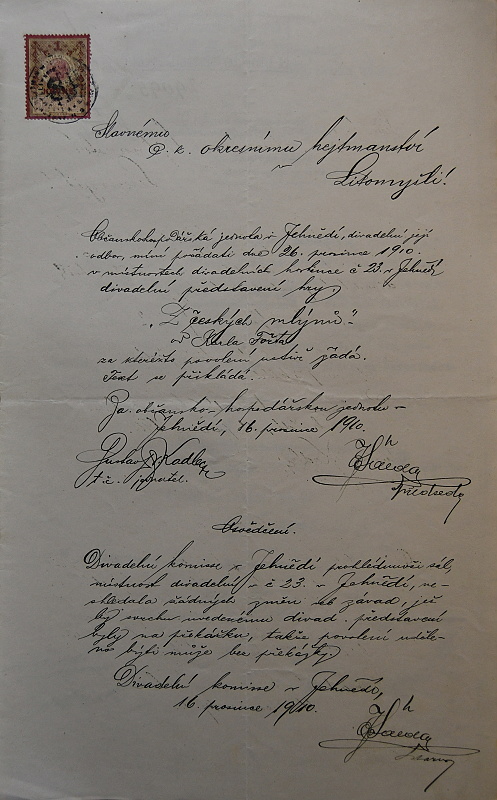 Slavnému
c. k. okresnímu hejtmanství
v
Litomyšli!
Občanskohospodářská jednota v Jehnědí, divadelní její
odbor, míní pořádati dne 26. prosince 1910
v místnostech divadelních hostince č 23. v Jehnědí
divadelní představení hry
"Z českých mlýnů"
od Karla Fořta
za kteréžto povolení uctivě žádá.
Text se přikládá.
Za občansko-hospodářskou jednotu v
Jehnědí, 16. prosince 1910.
Gustav Kadlec
t. č. jednatel.
předseda
Osvědčení.
Divadelní komisse v Jehnědí prohlédnuvši sál,
místnost divadelní v č 23. v Jehnědí, ne-
shledala žádných změn neb závad, jež
by svrchu uvedenému divad. představení
byly na překážku, takže povolení uděle-
no býti může bez překážky.
Divadelní komisse v Jehnědí,
16. prosince 1910.